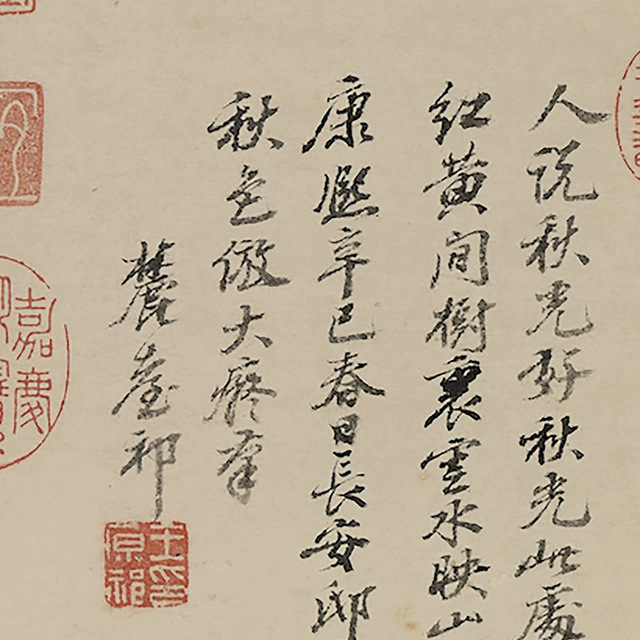 人說秋光好秋光此處
紅黃間樹裏雲水映山
康熙辛巳春日長安邸
秋色倣大癡筆
麓臺祁
王原祁印
嘉慶